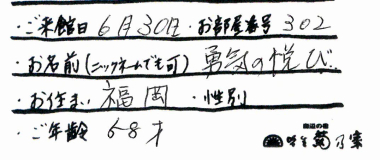 ・ご来館日 6月30日・お部屋番号 302
・お名前(ニックネームでも可) 勇気の悦び
・お住まい 福岡 ・性別
・ご年齢 68才